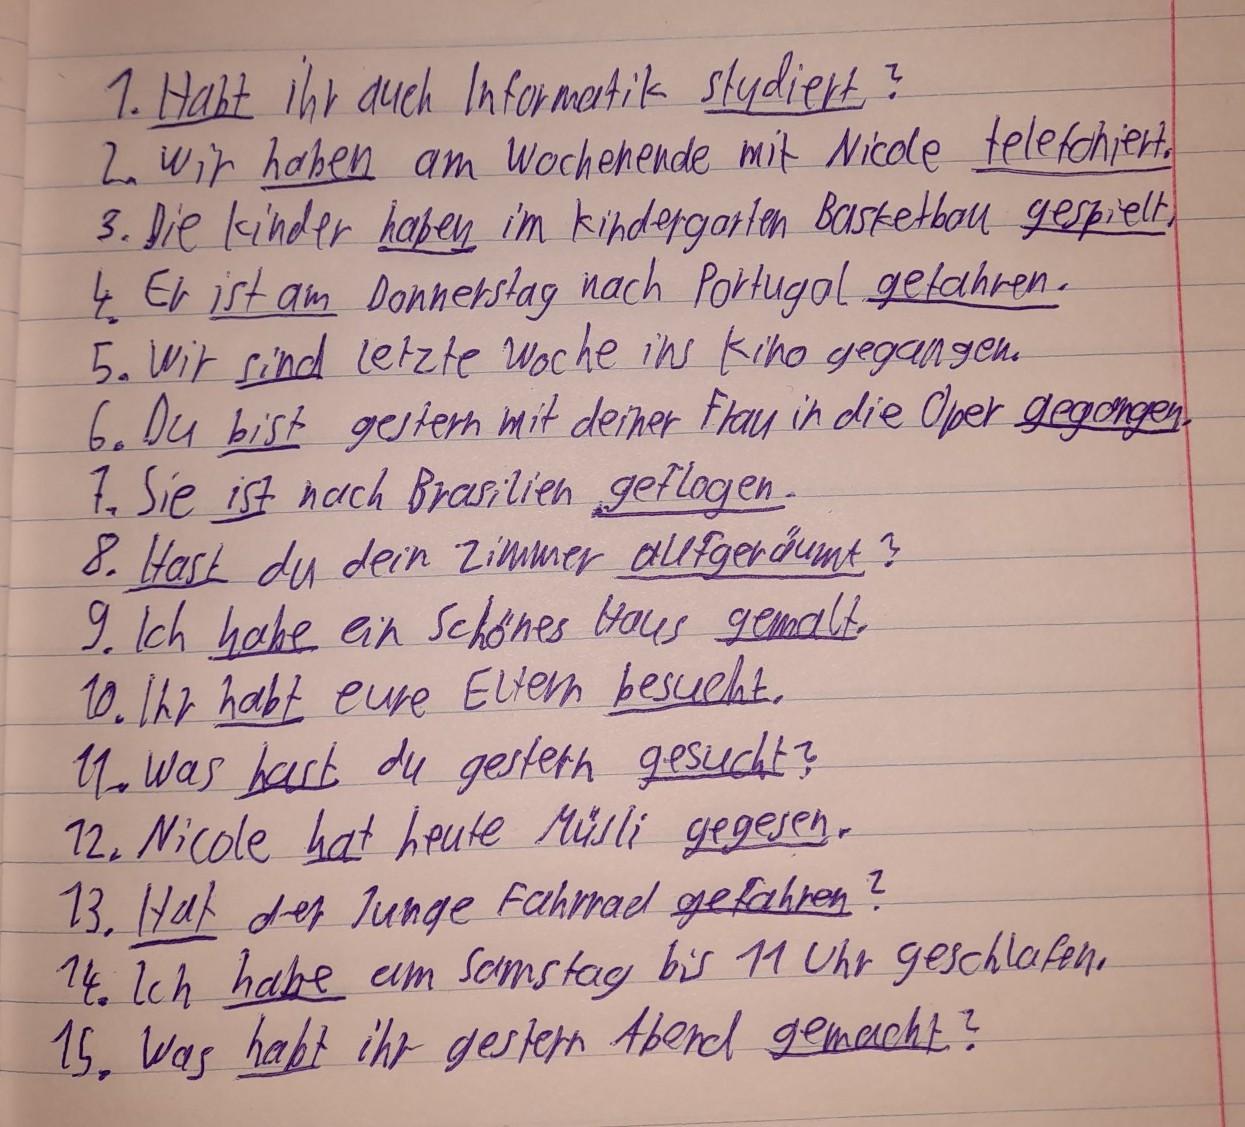 1. Habt ihr auch Informatik studiert?
2. Wir haben am Wochenende mit Nicole telefoniert.
3. Die Kinder haben im Kindergarten Basketball gespielt.
4. Er ist am Donnerstag nach Portugal gefahren.
5. Wir sind letzte Woche ins Kino gegangen.
6. Du bist gestern mit deiner Frau in die Oper gegangen.
7. Sie ist nach Brasilien geflogen.
8. Hast du dein Zimmer aufgeräumt?
9. Ich habe ein schönes Haus gemalt.
10. Ihr habt eure Eltern besucht.
11. Was hast du gestern gesucht?
12. Nicole hat heute Müsli gegesen.
13. Hat der Junge Fahrrad gefahren?
14. Ich habe am Samstag bis 11 Uhr geschlafen.
15. Was habt ihr gestern Abend gemacht?